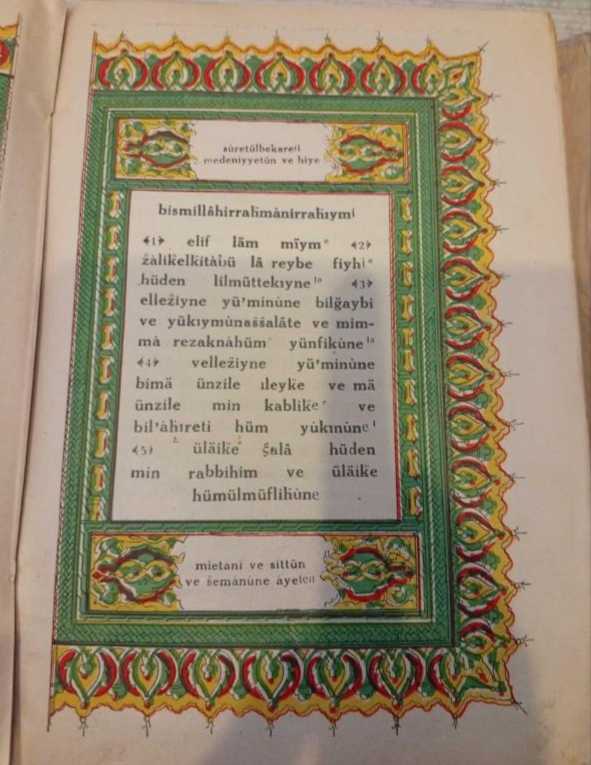 sûretülbekareti
medeniyyetün ve hiye
bismillâhirrahmànirrahıymi
﴾1﴿ elif lâm mîym ﴾2﴿
żàlikelkitàbü lâ reybe fiyhi
hüden lilmüttekıyne ﴾3﴿
elleżiyne yü'minùne bilğaybi
ve yükıymùnaṡṡalâte ve mim-
mà rezaknàhüm yünfikùne
﴾4﴿ velleżiyne yü'minùne
bimä ünzile ileyke ve mä
ünzile min kablike ve
bil'àhıreti hüm yùkınùne
﴾5﴿ üläike ġalâ hüden
min rabbihim ve üläike
hümülmüflihùne
mietani ve sittün
ve ŝemànùne âyetün